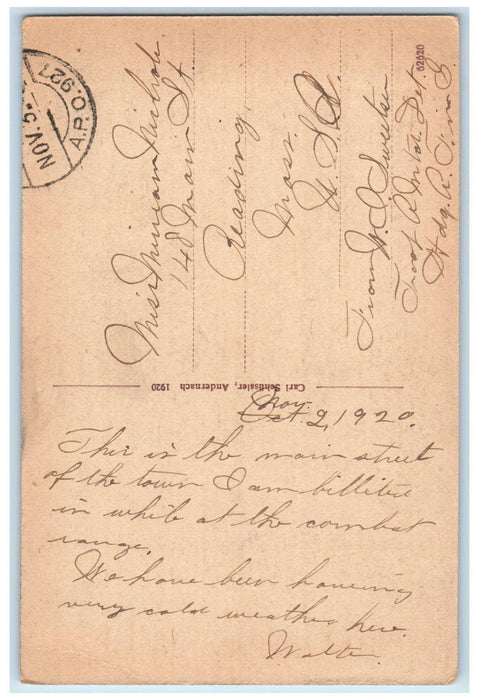 NOV. 5
A.P.O. 927
Miss Miriam Nichols
148 Main St
Reading,
Mass.
U.S.A.
From W. Sweetser
Troop A
Hdq. A.F. in G.
62620
Carl Schüssler, Andernach 1920
Nov.
Oct. 2, 1920.
This is the main street
of the town I am billited
in while at the combat
range.
We have been having
very cold weather here.
Walter